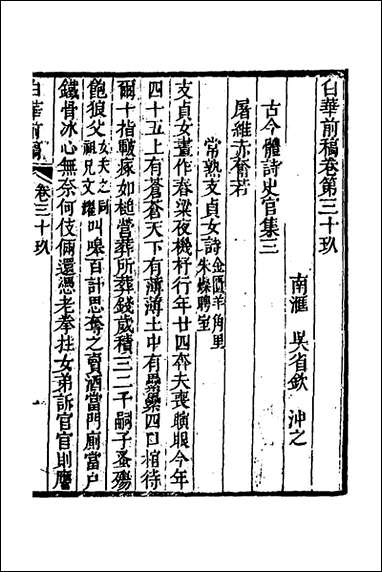 白華前稿卷第三十玖
南滙 吳省欽 沖之
古今體詩史官集三
屠維赤奮若
常熟支貞女詩金匱羊角里朱燦聘室
支貞女晝作舂梁夜機杼行年廿四夲夫喪瞚眼今年
四十五上有蒼蒼天下有薄薄土中有纍纍四口棺待
爾十指皸瘃如槌營葬所葬錢歲積三二千嗣子蚤殤
飽狼父女夫之同祖兄文燿叫嗥百計思奪之賣酒當門廁當户
鐵骨冰心無奈何伎倆還憑老拳拄女弟訴官官則譍
白華前稿
卷三十玖